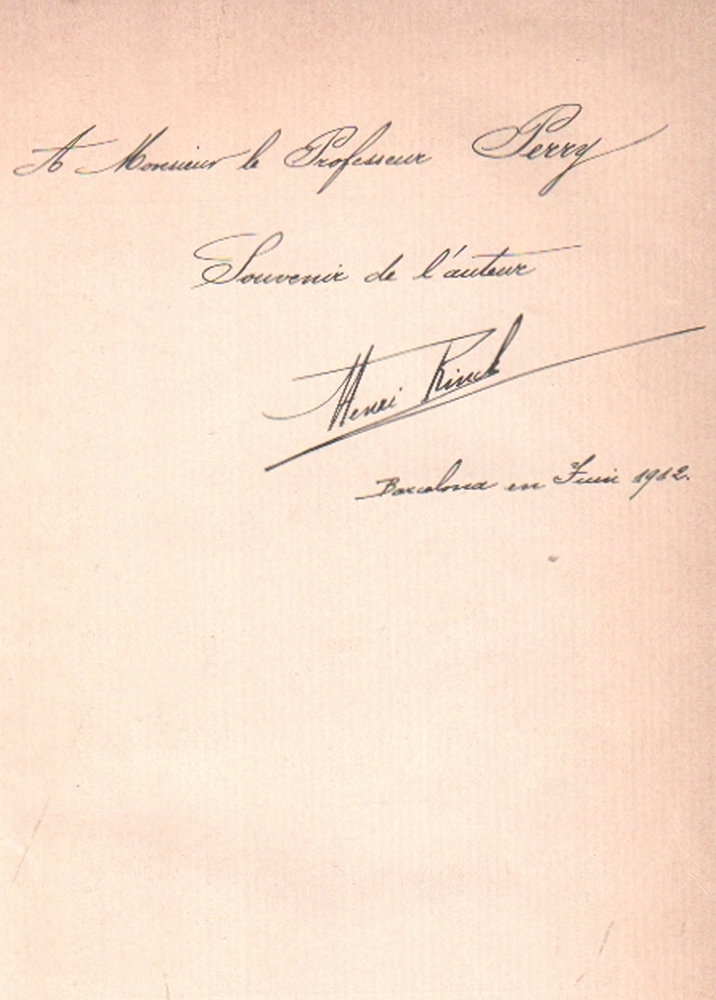 A Monsieur le Professeur Perry
Souvenir de l'auteur
Henri Rinck
Barcelona en Juin 1912.